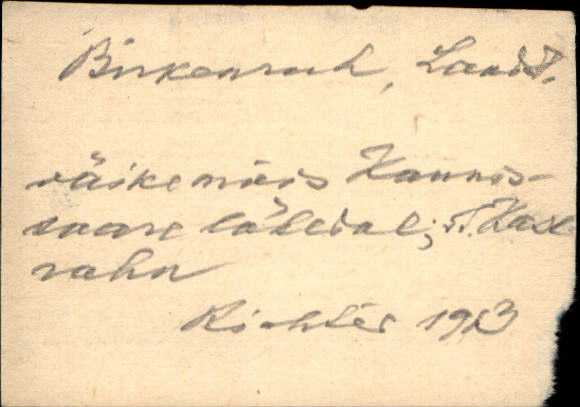 Birkenruh, Landst.
väike mõis Kannis-
saare lähedal; v.
rahu
Richter 1913